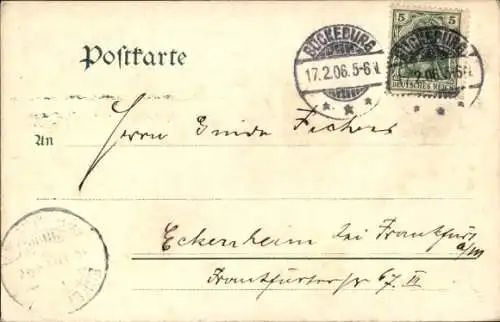 Postkarte
BÜCKEBURG
17.2.06.5-6N
5 5
BÜCKEBURG
2.06.5-6N
DEUTSCHES REICH
An
Herrn Guido Fischer
Eckenheim bei Frankfurt
a/m
Frankfurterstr 67. II